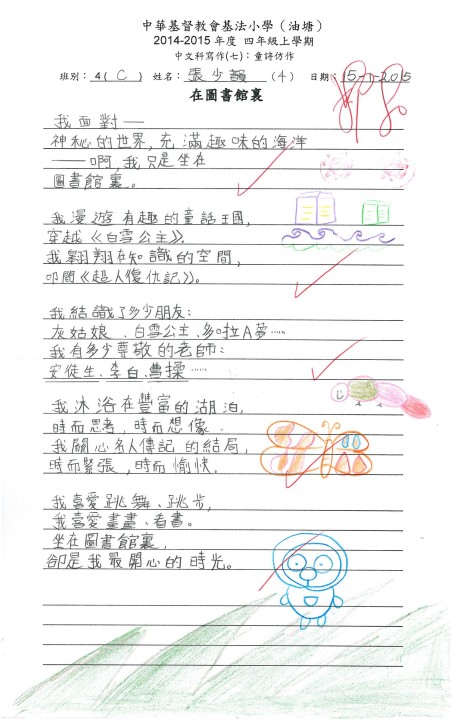 中華基督教會基法小學（油塘）
2014-2015 年度 四年級上學期
中文科寫作(七)：童詩仿作
班別： 4( C ) 姓名： 張少韻 (4) 日期： 15-1-2015
在圖書館裏
我面對——
神秘的世界,充滿趣味的海洋
——啊,我只是坐在
圖書館裏。
我漫遊有趣的童話王國,
穿越《白雪公主》。
我翱翔在知識的空間,
叩問《超人復仇記》。
我結識了多少朋友:
灰姑娘、白雪公主、多啦A夢……
我有多少尊敬的老師:
安徒生、李白、曹操……
我沐浴在豐富的湖泊,
時而思考,時而想像.
我關心名人傳記的結局,
時而緊張,時而愉快.
我喜愛跳舞、跳步,
我喜愛畫畫、看書。
坐在圖書館裏,
卻是我最開心的時光。